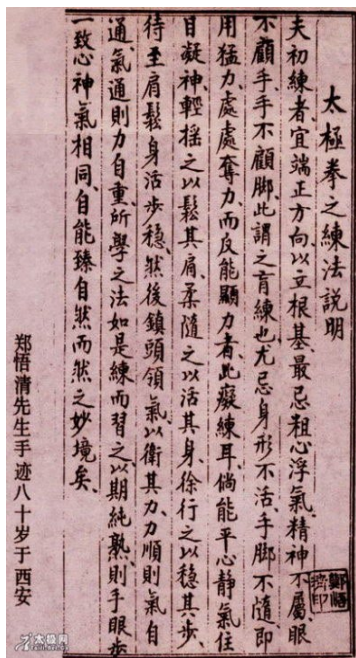 太極拳之練法説明
夫初練者、宜端正方向、以立根基、最忌粗心浮氣、精神不屬、眼
不顧手、手不顧脚、此謂之盲練也、尤忌身形不活、手脚不隨、即
用猛力、處處奪力、而反能顯力者、此癡練耳、倘能平心静氣、住
目凝神、輕摇之以鬆其肩、柔隨之以活其身、徐行之以穩其步、
待至肩鬆身活步穩、然後鎮頭領氣、以衛其力、力順則氣自
通、氣通則力自重、所學之法、如是練而習之、以期純熟、則手眼步
一致、心神氣相同、自能臻自然而然之妙境矣、
鄭悟清印
郑悟清先生手迹八十岁于西安
太极网